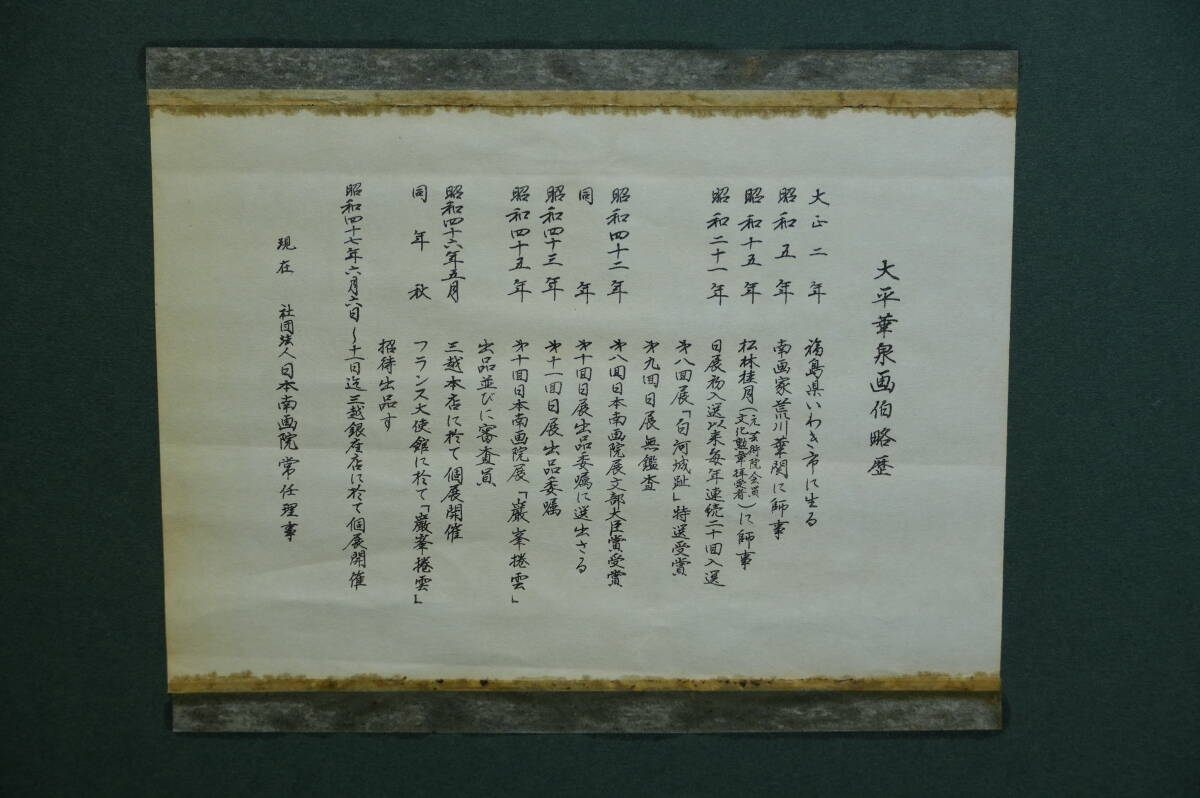 大平華泉画伯略歴
大正二年 福島県いわき市に生る
昭和五年 南画家荒川華関に師事
昭和十五年 松林桂月(元芸術院会員 文化勲章拝受者)に師事
昭和二十一年 日展初入選以来毎年連続二十回入選
第八回展「白河城趾」特選受賞
第九回日展無鑑査
昭和四十二年 第八回日本南画院展文部大臣賞受賞
同年 第十回日展出品委嘱に選出さる
昭和四十三年 第十一回日展出品委嘱
昭和四十五年 第十回日本南画院展「巌峯捲雲」
出品並びに審査員
昭和四十六年五月 三越本店に於て個展開催
同年秋 フランス大使館に於て「巌峯捲雲」
招待出品す
昭和四十七年六月六日〜十一日迄三越銀座店に於て個展開催
現在 社団法人日本南画院常任理事